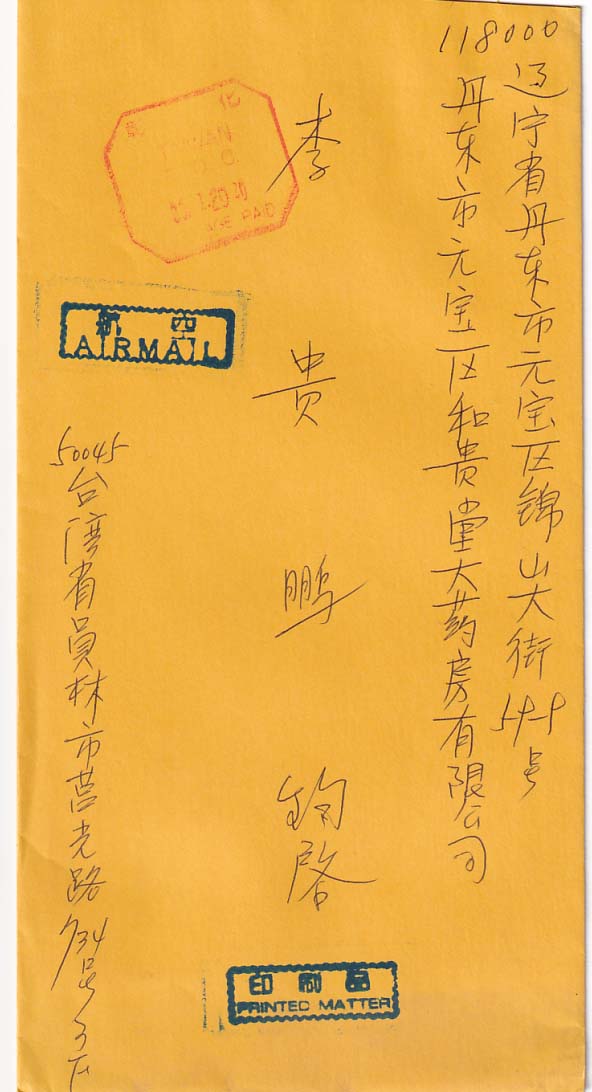 118000
辽宁省丹东市元宝区锦山大街 号
丹东市元宝区和贵堂大药房有限公司
李贵鹏 钧啓
化
PAID
航空
AIRMAIL
50045
台湾省員林市莒光路734号
印刷品
PRINTED MATTER